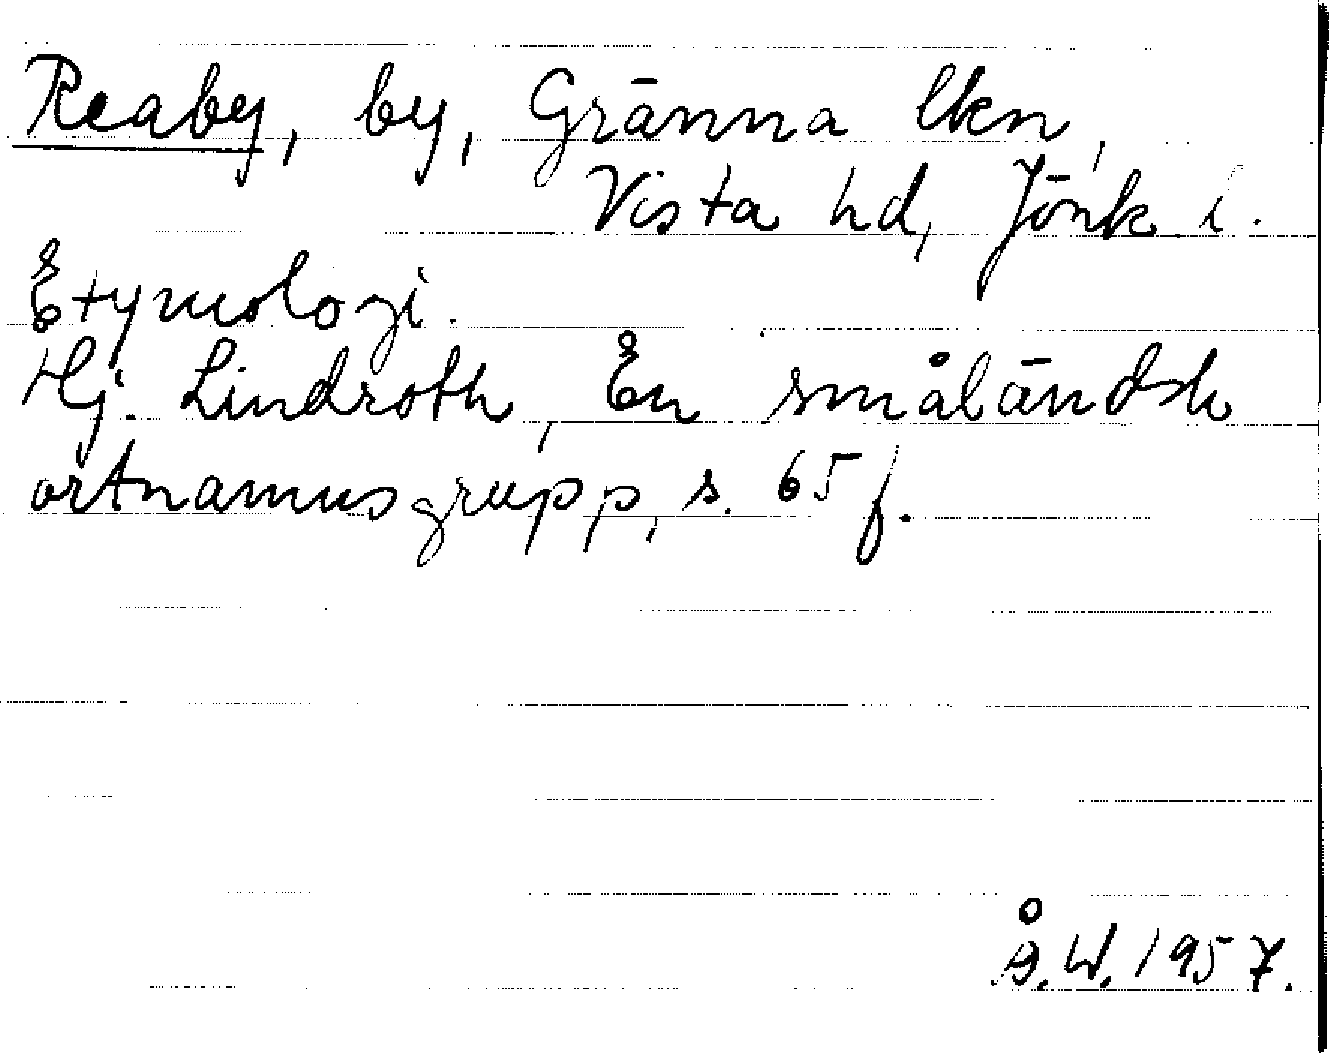 Reaby, by, Gränna lkn,
Vista hd, Jönk. l.
Etymologi.
Hj. Lindroth, En småländsk
ortnamnsgrupp, s. 65 f.
Å.W. 1957.